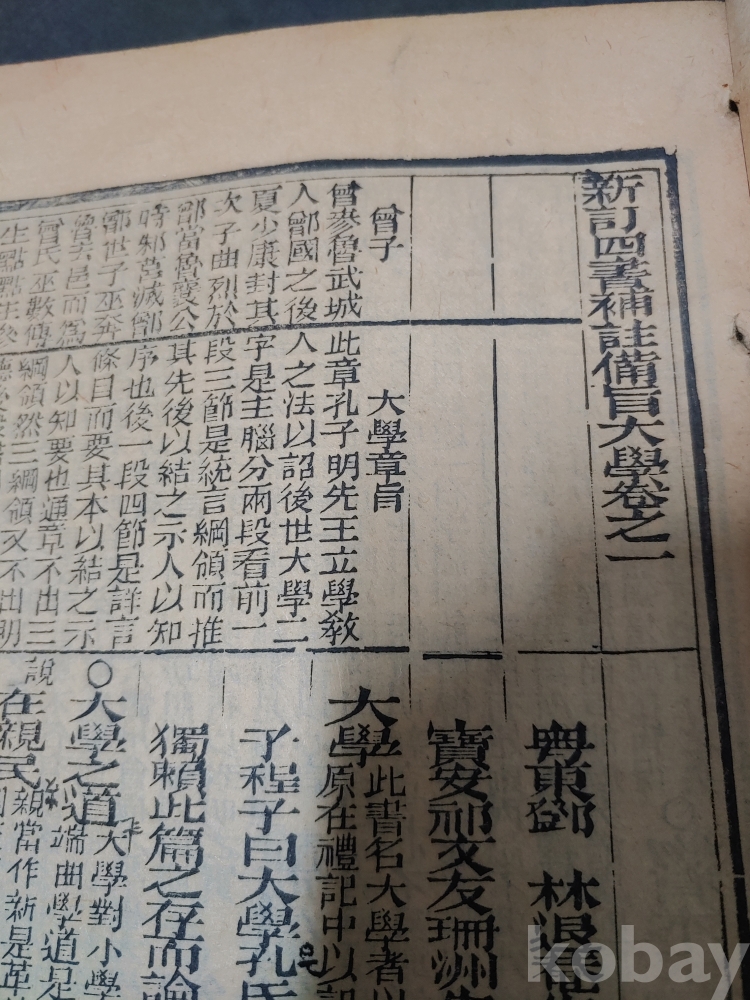 新訂四書補註備旨大學卷之一
曾子
曾參魯武城
人鄫國之後
夏少康封其
次子曲烈於
鄫當魯襄公
時邾莒滅鄫
鄫世子巫奔
魯去邑而為
曾氏巫數傳
生點點生
大學章旨
此章孔子明先王立學教
人之法以詔後世大學二
字是主腦分兩段看前一
段三節是統言綱領而推
其先後以結之示人以知
序也後一段四節是詳言
條目而要其本以結之示
人以知要也通章不出三
綱領然三綱領又不出明
粤東鄧 林退菴
寶安祁文友珊洲
大學此書名大學者以
原在禮記中以記
子程子曰大學孔氏
獨賴此篇之存而論
○大學之道大學對小學
端曲學道是
說
在親民親當作新是革
kobay